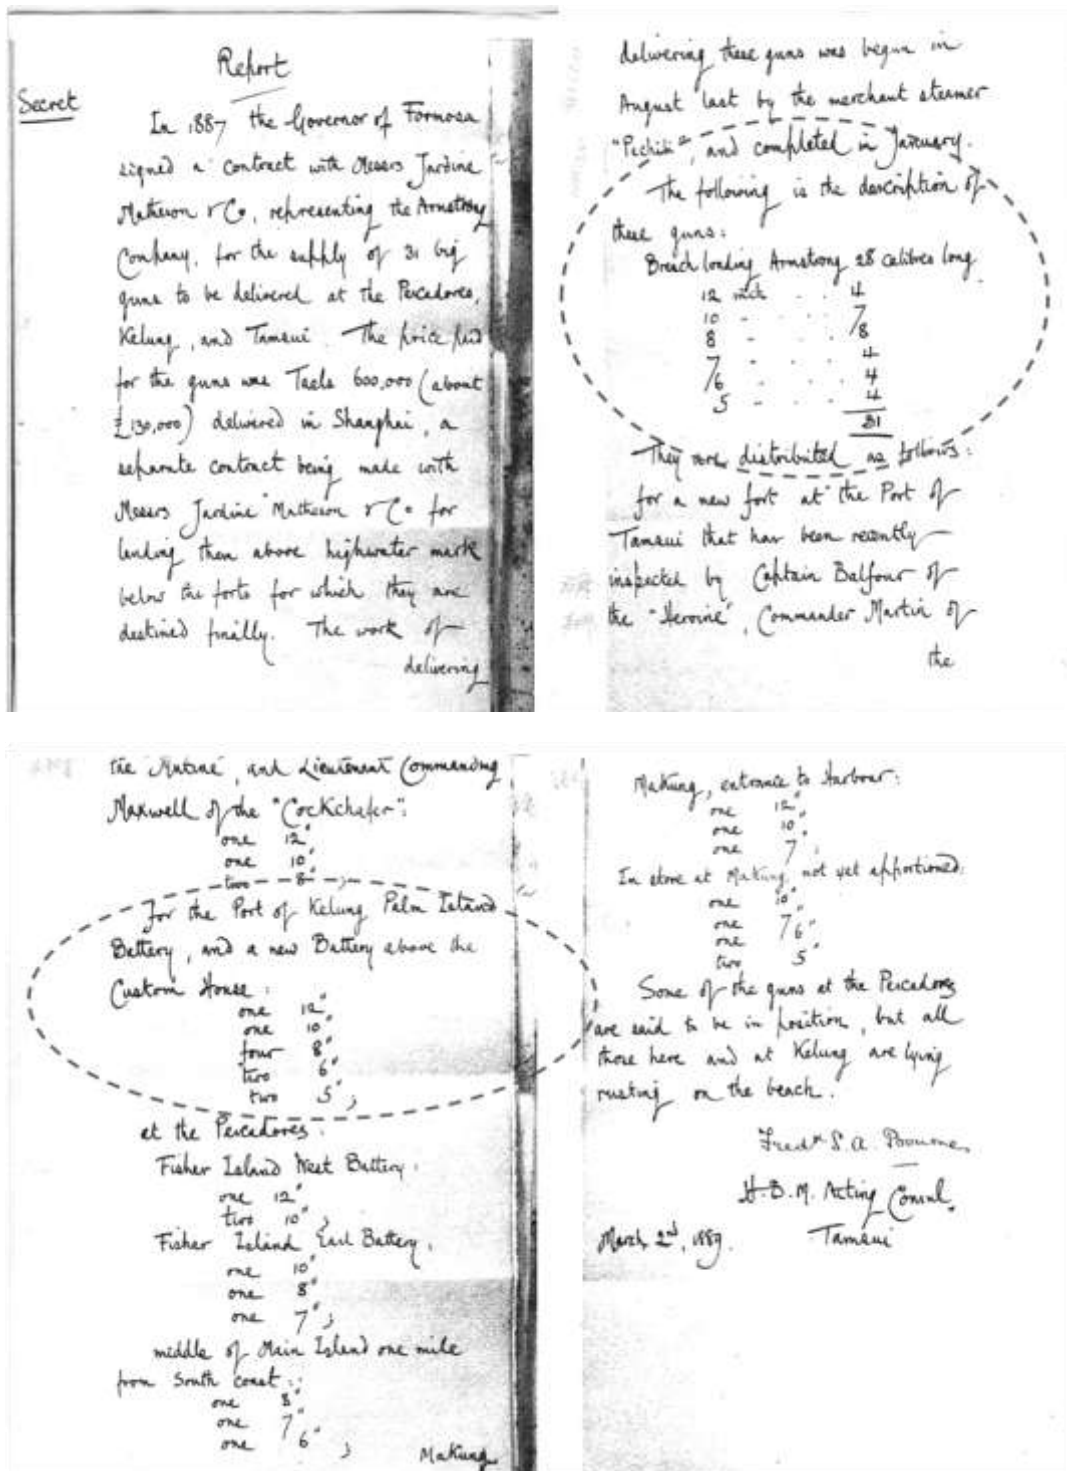 Report
Secret
In 1887 the Governor of Formosa
signed a contract with Messrs Jardine
Matheson & Co, representing the Armstrong
Company, for the supply of 31 big
guns to be delivered at the Pescadores,
Kelung, and Tamsui. The price paid
for the guns was Taels 600,000 (about
£130,000) delivered in Shanghai, a
separate contract being made with
Messrs Jardine Matheson & Co for
landing them above highwater mark
below the forts for which they are
destined finally. The work of
delivering
delivering these guns was begun in
August last by the merchant steamer
"Pechili", and completed in January.
The following is the description of
these guns:
Breech loading Armstrong 28 calibres long
12 inch . . 4
10 - . . 7
8 - . . 8
7 - . . 4
6 - . . 4
5 - . . 4
31
They were distributed as follows:
for a new fort at the Port of
Tamsui that has been recently
inspected by Captain Balfour of
the "Heroine", Commander Martin of
the
the "Mutine", and Lieutenant Commanding
Maxwell of the "Cockchafer":
one 12"
one 10"
two 8" ;
For the Port of Kelung Palm Island
Battery, and a new Battery above the
Custom House:
one 12"
one 10"
four 8"
two 6"
two 5" ;
at the Pescadores:
Fisher Island West Battery:
one 12"
two 10" ;
Fisher Island East Battery:
one 10"
one 8"
one 7" ;
middle of Main Island one mile
from South coast:
one 8"
one 7"
one 6" ;
Makung
Makung, entrance to Harbour:
one 12"
one 10"
one 7" ;
In store at Makung not yet apportioned:
one 10"
one 7"
one 6"
two 5"
Some of the guns at the Pescadores
are said to be in position, but all
those here and at Kelung are lying
rusting on the beach.
Fredk S. A. Bourne
H.B.M. Acting Consul
Tamsui
March 2nd, 1889.